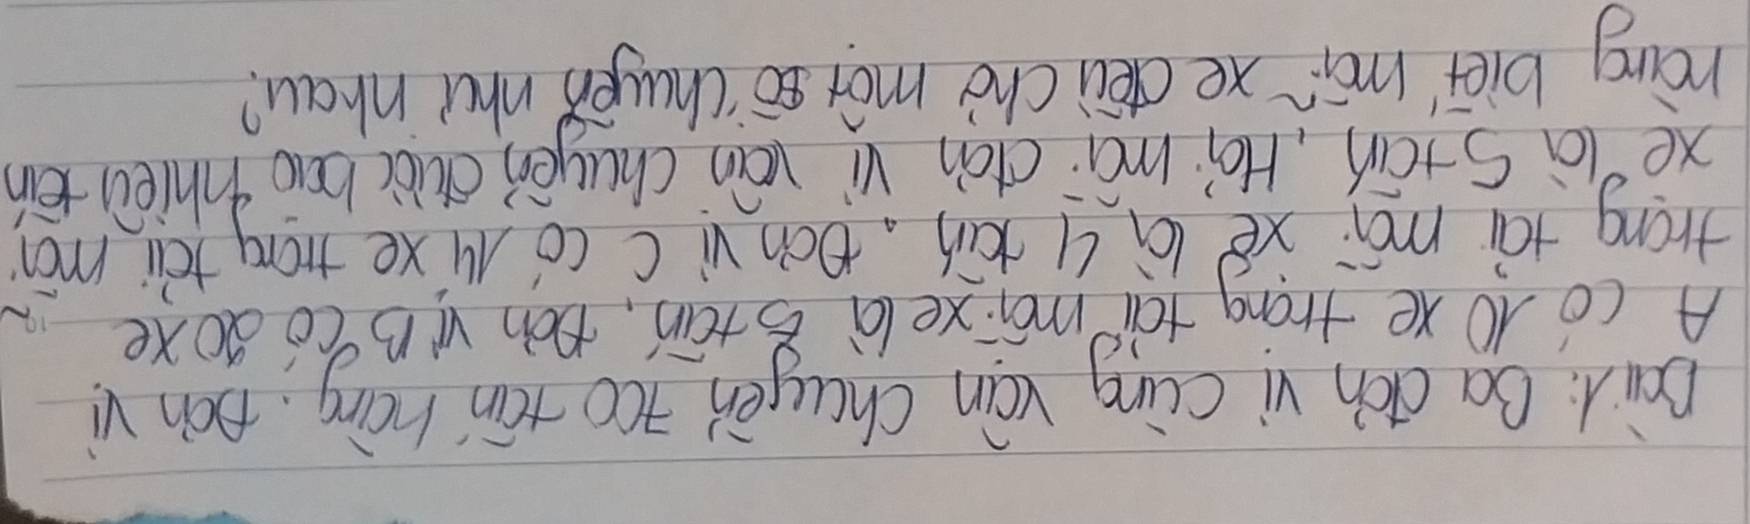 Bài 1: Ba đơn vị cùng vận chuyển 700 tấn hàng. Đơn vị
A có 10 xe trọng tải mỗi xe là 5 tấn, Đơn vị B có 20 xe
trọng tải mỗi xe là 4 tấn. Đơn vị C có 14 xe trọng tải mỗi
xe là 5 tấn, Hỏi mỗi đơn vị vận chuyển được bao nhiêu tấn
hàng biết mỗi xe đều chở một số chuyến như nhau?